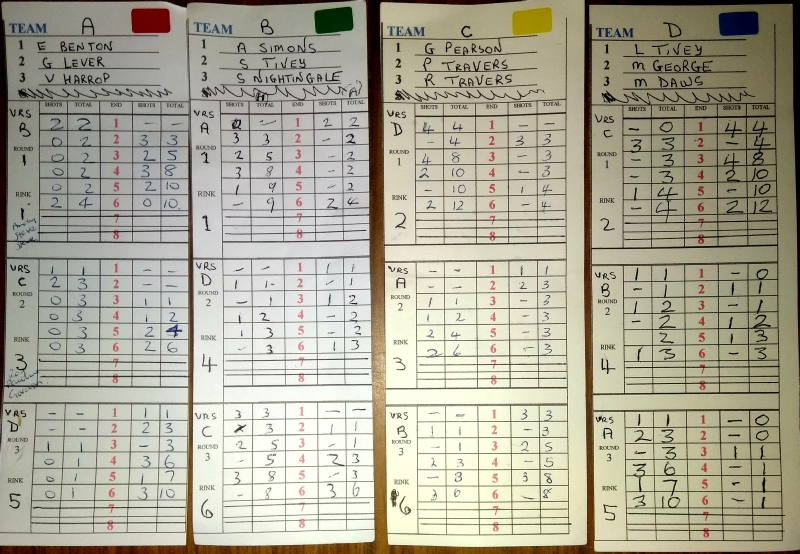 TEAM A
1 E BENTON
2 G LEVER
3 V HARROP
SHOTS TOTAL END SHOTS TOTAL
VRS B
ROUND 1
RINK 1
2 2 1 - -
0 2 2 3 3
0 2 3 2 5
0 2 4 3 8
0 2 5 2 10
2 4 6 0 10
7
8
VRS C
ROUND 2
RINK 3
1 1 1 - -
2 3 2 - -
0 3 3 1 1
0 3 4 1 2
0 3 5 2 4
0 3 6 2 6
7
8
VRS D
ROUND 3
RINK 5
- - 1 1 1
- - 2 2 3
1 1 3 - 3
0 1 4 3 6
0 1 5 1 7
0 1 6 3 10
7
8
TEAM B
1 A SIMONS
2 S TIVEY
3 S NIGHTINGALE
SHOTS TOTAL END SHOTS TOTAL
VRS A
ROUND 1
RINK 1
0 - 1 2 2
3 3 2 - 2
2 5 3 - 2
3 8 4 - 2
1 9 5 - 2
- 9 6 2 4
7
8
VRS D
ROUND 2
RINK 4
- - 1 1 1
1 1 2 - 1
- 1 3 1 2
1 2 4 - 2
1 3 5 - 2
- 3 6 1 3
7
8
VRS C
ROUND 3
RINK 6
3 3 1 - -
3 2 1 1
2 5 3 - 1
- 5 4 2 3
3 8 5 - 3
- 8 6 3 6
7
8
TEAM C
1 G PEARSON
2 P TRAVERS
3 R TRAVERS
SHOTS TOTAL END SHOTS TOTAL
VRS D
ROUND 1
RINK 2
4 4 1 - -
- 4 2 3 3
4 8 3 - 3
2 10 4 - 3
- 10 5 1 4
2 12 6 - 4
7
8
VRS A
ROUND 2
RINK 3
- - 1 1 1
- - 2 2 3
1 1 3 - 3
1 2 4 - 3
2 4 5 - 3
2 6 6 - 3
7
8
VRS B
ROUND 3
RINK 6
- - 1 3 3
1 1 2 - 3
- 1 3 2 5
2 3 4 - 5
- 3 5 3 8
3 6 6 - 8
7
8
TEAM D
1 L TIVEY
2 M GEORGE
3 M DAWS
SHOTS TOTAL END SHOTS TOTAL
VRS C
ROUND 1
RINK 2
- 0 1 4 4
3 3 2 - 4
- 3 3 4 8
- 3 4 2 10
1 4 5 - 10
- 4 6 2 12
7
8
VRS B
ROUND 2
RINK 4
1 1 1 - 0
- 1 2 1 1
1 2 3 - 1
- 2 4 1 2
2 5 1 3
1 3 6 - 3
7
8
VRS A
ROUND 3
RINK 5
1 1 1 - 0
2 3 2 - 0
- 3 3 1 1
3 6 4 - 1
1 7 5 - 1
3 10 6 - 1
7
8